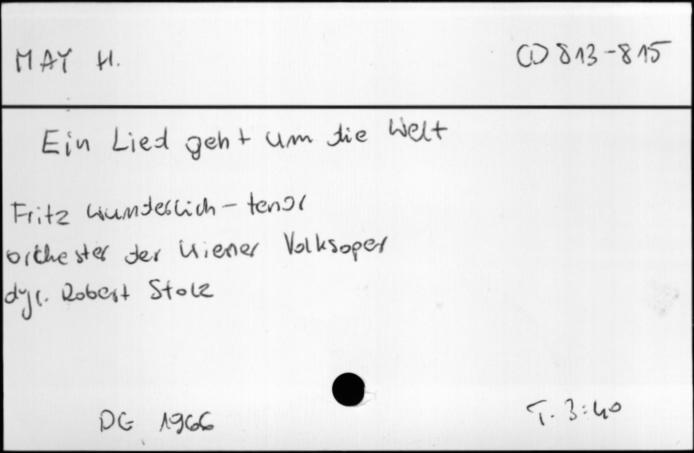 MAY H.
CD 813-815
Ein Lied geht um die Welt
Fritz Wunderlich - tenor
orchester der Wiener Volksoper
dyr. Robert Stolz
DG 1966
T. 3:40